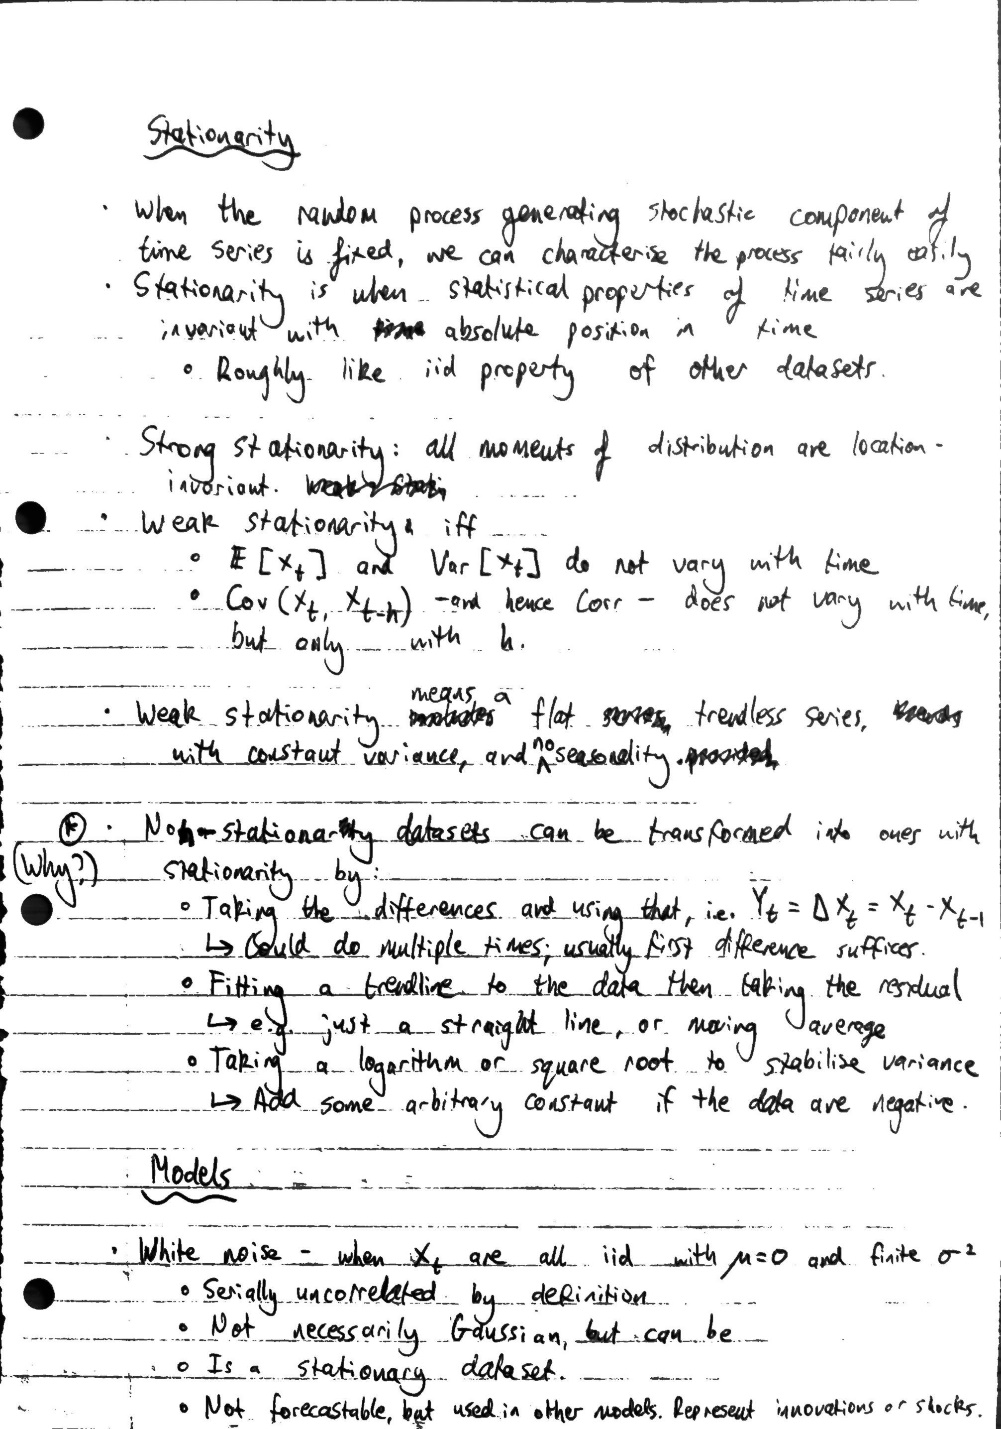 Stationarity
· When the random process generating stochastic component of
time series is fixed, we can characterise the process fairly easily
· Stationarity is when statistical properties of time series are
invariant with absolute position in time
∘ Roughly like iid property of other datasets.
· Strong stationarity: all moments of distribution are location-
invariant.
· Weak stationarity iff
∘ 𝔼[Xt] and Var[Xt] do not vary with time
∘ Cov(Xt, Xt-h) - and hence Corr - does not vary with time,
but only with h.
· Weak stationarity means a flat trendless series,
with constant variance, and no seasonality.
(*) · Non-stationary datasets can be transformed into ones with
(Why?) stationarity by:
∘ Taking the differences and using that, i.e. Yt = ΔXt = Xt - Xt-1
↳ Could do multiple times; usually first difference suffices.
∘ Fitting a trendline to the data then taking the residual
↳ e.g. just a straight line, or moving average
∘ Taking a logarithm or square root to stabilise variance
↳ Add some arbitrary constant if the data are negative.
Models
· White noise - when Xt are all iid with μ=0 and finite σ²
∘ Serially uncorrelated by definition
∘ Not necessarily Gaussian, but can be
∘ Is a stationary dataset.
∘ Not forecastable, but used in other models. Represent innovations or shocks.